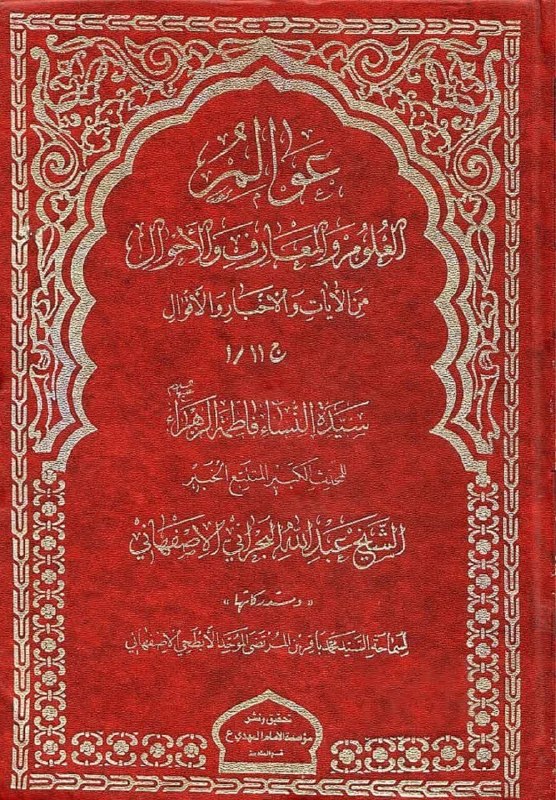 عوالم
العلوم والمعارف والأحوال
من الآيات والأخبار والأقوال
ج ١١/١
سيدة النساء فاطمة الزهراء
للمحدث الكبير المتتبع الخبير
الشيخ عبد الله البحراني الأصفهاني
«ومستدركاتها»
لسماحة السيد محمد باقر بن المرتضى الموحد الأبطحي الأصفهاني
تحقيق ونشر
مؤسسة الامام المهدي ع
قم المقدسة